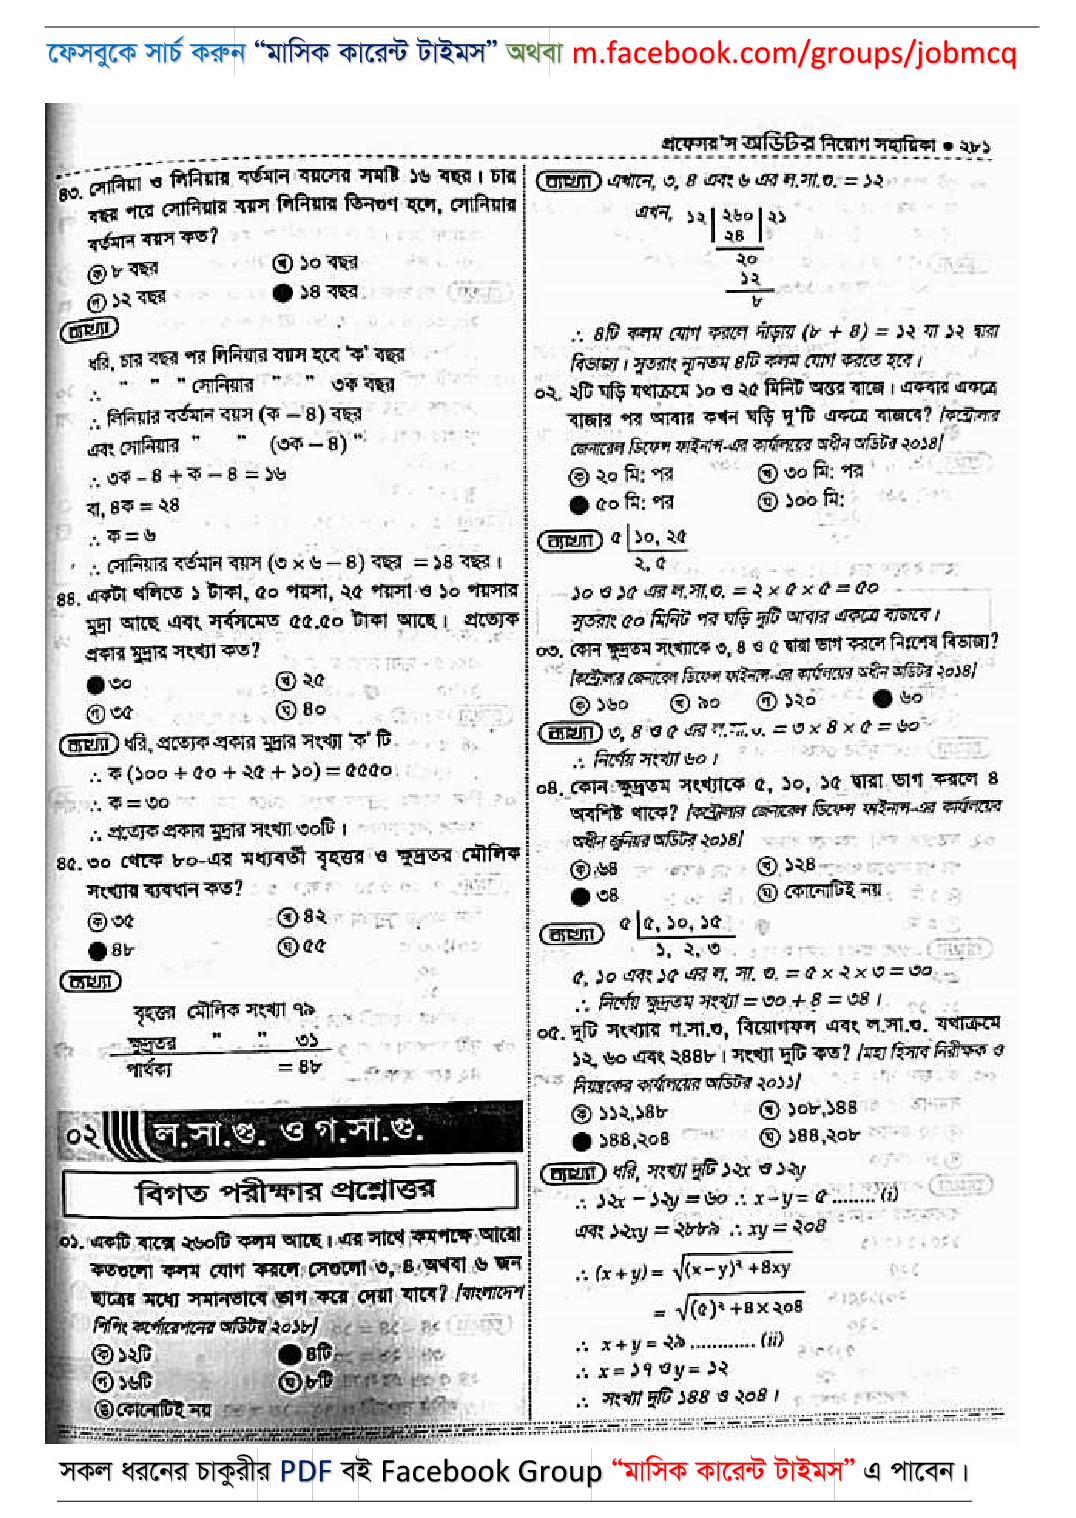 ফেসবুকে সার্চ করুন “মাসিক কারেন্ট টাইমস” অথবা m.facebook.com/groups/jobmcq
প্রফেসর'স অডিটর নিয়োগ সহায়িকা ● ২৮১
৪৩. সোনিয়া ও লিনিয়ার বর্তমান বয়সের সমষ্টি ১৬ বছর। চার
বছর পরে সোনিয়ার বয়স লিনিয়ার তিনগুণ হলে, সোনিয়ার
বর্তমান বয়স কত?
ক ৮ বছর খ ১০ বছর
গ ১২ বছর ● ১৪ বছর
ব্যাখ্যা
ধরি, চার বছর পর লিনিয়ার বয়স হবে ‘ক’ বছর
∴ " " " সোনিয়ার " " ৩ক বছর
∴ লিনিয়ার বর্তমান বয়স (ক – ৪) বছর
এবং সোনিয়ার " " (৩ক – ৪) "
∴ ৩ক – ৪ + ক – ৪ = ১৬
বা, ৪ক = ২৪
∴ ক = ৬
∴ সোনিয়ার বর্তমান বয়স (৩ × ৬ – ৪) বছর = ১৪ বছর।
৪৪. একটা থলিতে ১ টাকা, ৫০ পয়সা, ২৫ পয়সা ও ১০ পয়সার
মুদ্রা আছে এবং সর্বসমেত ৫৫.৫০ টাকা আছে। প্রত্যেক
প্রকার মুদ্রার সংখ্যা কত?
● ৩০ খ ২৫
গ ৩৫ ঘ ৪০
ব্যাখ্যা ধরি, প্রত্যেক প্রকার মুদ্রার সংখ্যা ‘ক’ টি
∴ ক (১০০ + ৫০ + ২৫ + ১০) = ৫৫৫০
∴ ক = ৩০
∴ প্রত্যেক প্রকার মুদ্রার সংখ্যা ৩০টি।
৪৫. ৩০ থেকে ৮০-এর মধ্যবর্তী বৃহত্তর ও ক্ষুদ্রতর মৌলিক
সংখ্যার ব্যবধান কত?
ক ৩৫ খ ৪২
● ৪৮ ঘ ৫৫
ব্যাখ্যা
বৃহত্তর মৌলিক সংখ্যা ৭৯
ক্ষুদ্রতর " " ৩১
পার্থক্য = ৪৮
০২ ল.সা.গু. ও গ.সা.গু.
বিগত পরীক্ষার প্রশ্নোত্তর
০১. একটি বাক্সে ২৬০টি কলম আছে। এর সাথে কমপক্ষে আরো
কতগুলো কলম যোগ করলে সেগুলো ৩, ৪ অথবা ৬ জন
ছাত্রের মধ্যে সমানভাবে ভাগ করে দেয়া যাবে? [বাংলাদেশ
শিপিং কর্পোরেশনের অডিটর ২০১৮]
ক ১২টি ● ৪টি
গ ১৬টি ঘ ৮টি
ঙ কোনোটিই নয়
ব্যাখ্যা এখানে, ৩, ৪ এবং ৬ এর ল.সা.গু. = ১২
এখন, ১২ | ২৬০ | ২১
২৪
২০
১২
৮
∴ ৪টি কলম যোগ করলে দাঁড়ায় (৮ + ৪) = ১২ যা ১২ দ্বারা
বিভাজ্য। সুতরাং ন্যূনতম ৪টি কলম যোগ করতে হবে।
০২. ২টি ঘড়ি যথাক্রমে ১০ ও ২৫ মিনিট অন্তর বাজে। একবার একত্রে
বাজার পর আবার কখন ঘড়ি দু'টি একত্রে বাজবে? [কন্ট্রোলার
জেনারেল ডিফেন্স ফাইনান্স-এর কার্যালয়ের অধীন অডিটর ২০১৪]
ক ২০ মি: পর খ ৩০ মি: পর
● ৫০ মি: পর ঘ ১০০ মি:
ব্যাখ্যা ৫ | ১০, ২৫
২, ৫
১০ ও ১৫ এর ল.সা.গু. = ২ × ৫ × ৫ = ৫০
সুতরাং ৫০ মিনিট পর ঘড়ি দুটি আবার একত্রে বাজবে।
০৩. কোন ক্ষুদ্রতম সংখ্যাকে ৩, ৪ ও ৫ দ্বারা ভাগ করলে নিঃশেষ বিভাজ্য?
[কন্ট্রোলার জেনারেল ডিফেন্স ফাইনান্স-এর কার্যালয়ের অধীন অডিটর ২০১৪]
ক ১৬০ খ ৯০ গ ১২০ ● ৬০
ব্যাখ্যা ৩, ৪ ও ৫ এর ল.সা.গু. = ৩ × ৪ × ৫ = ৬০
∴ নির্ণেয় সংখ্যা ৬০।
০৪. কোন ক্ষুদ্রতম সংখ্যাকে ৫, ১০, ১৫ দ্বারা ভাগ করলে ৪
অবশিষ্ট থাকে? [কন্ট্রোলার জেনারেল ডিফেন্স ফাইনান্স-এর কার্যালয়ের
অধীন জুনিয়র অডিটর ২০১৪]
ক ৬৪ খ ১২৪
● ৩৪ ঘ কোনোটিই নয়
ব্যাখ্যা ৫ | ৫, ১০, ১৫
১, ২, ৩
৫, ১০ এবং ১৫ এর ল. সা. গু. = ৫ × ২ × ৩ = ৩০
∴ নির্ণেয় ক্ষুদ্রতম সংখ্যা = ৩০ + ৪ = ৩৪।
০৫. দুটি সংখ্যার গ.সা.গু, বিয়োগফল এবং ল.সা.গু. যথাক্রমে
১২, ৬০ এবং ২৪৪৮। সংখ্যা দুটি কত? [মহা হিসাব নিরীক্ষক ও
নিয়ন্ত্রকের কার্যালয়ের অডিটর ২০১১]
ক ১১২,১৪৮ খ ১০৮,১৪৪
● ১৪৪,২০৪ ঘ ১৪৪,২০৮
ব্যাখ্যা ধরি, সংখ্যা দুটি ১২x ও ১২y
∴ ১২x – ১২y = ৬০ ∴ x – y = ৫ ........ (i)
এবং ১২xy = ২৮৮৯ ∴ xy = ২০৪
∴ (x + y) = √(x – y)² + ৪xy
= √(৫)² + ৪ × ২০৪
∴ x + y = ২৯ ............ (ii)
∴ x = ১৭ ও y = ১২
∴ সংখ্যা দুটি ১৪৪ ও ২০৪।
সকল ধরনের চাকুরীর PDF বই Facebook Group “মাসিক কারেন্ট টাইমস” এ পাবেন।